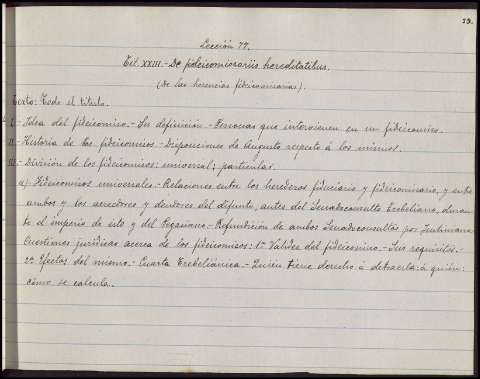 79.
Lección 77.
Tít. XXIII.- De fideicomisrariis hereditatibus.
(De las herencias fideicomisarias).
Texto: Todo el título.
I.- Idea del fideicomiso.- Su definición.- Personas que intervienen en un fideicomiso.
II.- Historia de los fideicomisos.- Disposiciones de Augusto respecto á los mismos.
III.- División de los fideicomisos: universal; particular.
a) Fideicomisos universales.- Relaciones entre los herederos fiduciario y fideicomisario, y entre
ambos y los acreedores y deudores del difunto, antes del Senadoconsulto Trebeliano, duran-
te el imperio de éste y del Pegasiano.- Refundición de ambos Senadoconsultos por Justiniano.
Cuestiones jurídicas acerca de los fideicomisos: 1ª Validez del fideicomiso.- Sus requisitos.-
2ª Efectos del mismo.- Cuarta Trebeliánica.- Quién tiene derecho a detraerla: á quién:
cómo se calcula.